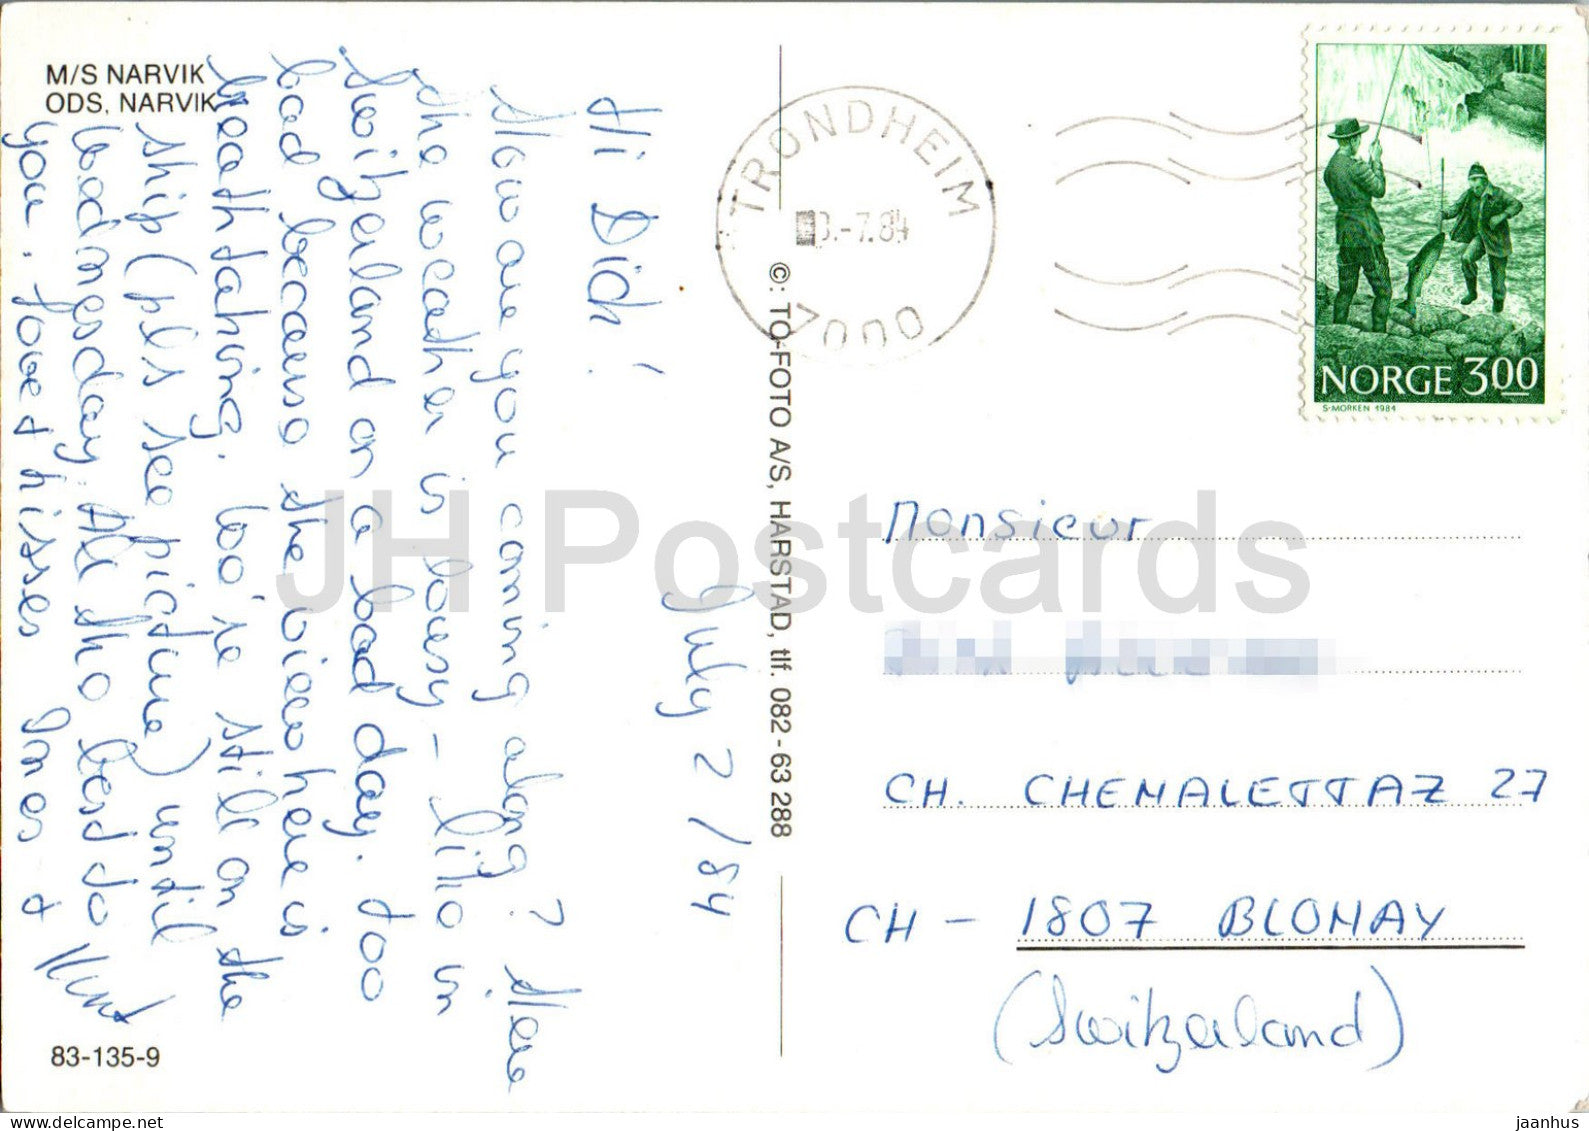 M/S NARVIK
ODS, NARVIK
July 2/84
Hi Dich!
How are you coming along? Here
the weather is lousy - like in
Switzerland on a bad day. Too
bad because the view here is
breathtaking. We're still on the
ship (pls see picture) until
Wednesday. All the best to
you. Love & kisses Ines &
Kurt
83-135-9
©: TO-FOTO A/S, HARSTAD, tlf. 082-63 288
TRONDHEIM
-7.84
7000
NORGE 3.00
S·MORKEN 1984
Monsieur
CH. CHEMALETTAZ 27
CH - 1807 BLONAY
(Switzerland)
JH Postcards
www.delcampe.net
jaanhus